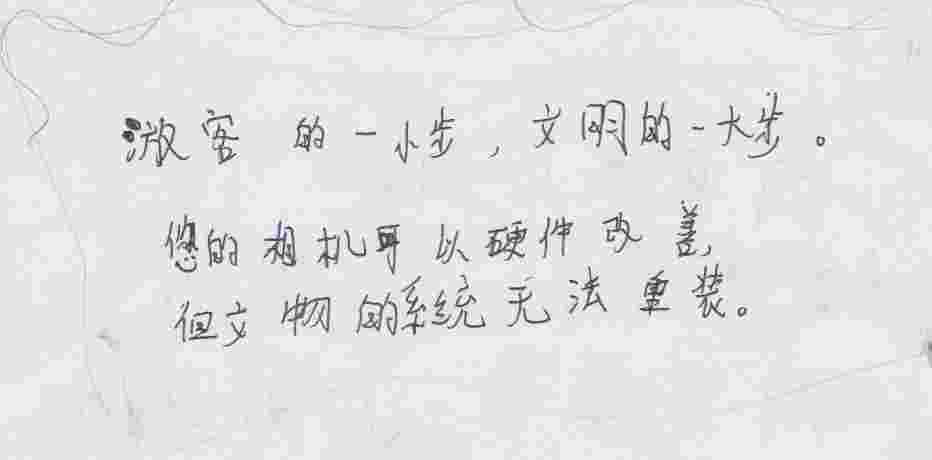 游客的一小步，文明的一大步。
您的相机可以硬件改善，
但文物的系统无法重装。